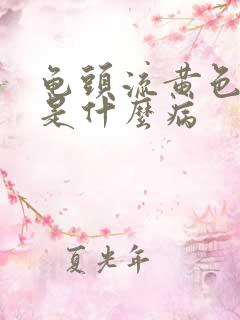 龟頭流黄色
是什麼病
夏光年